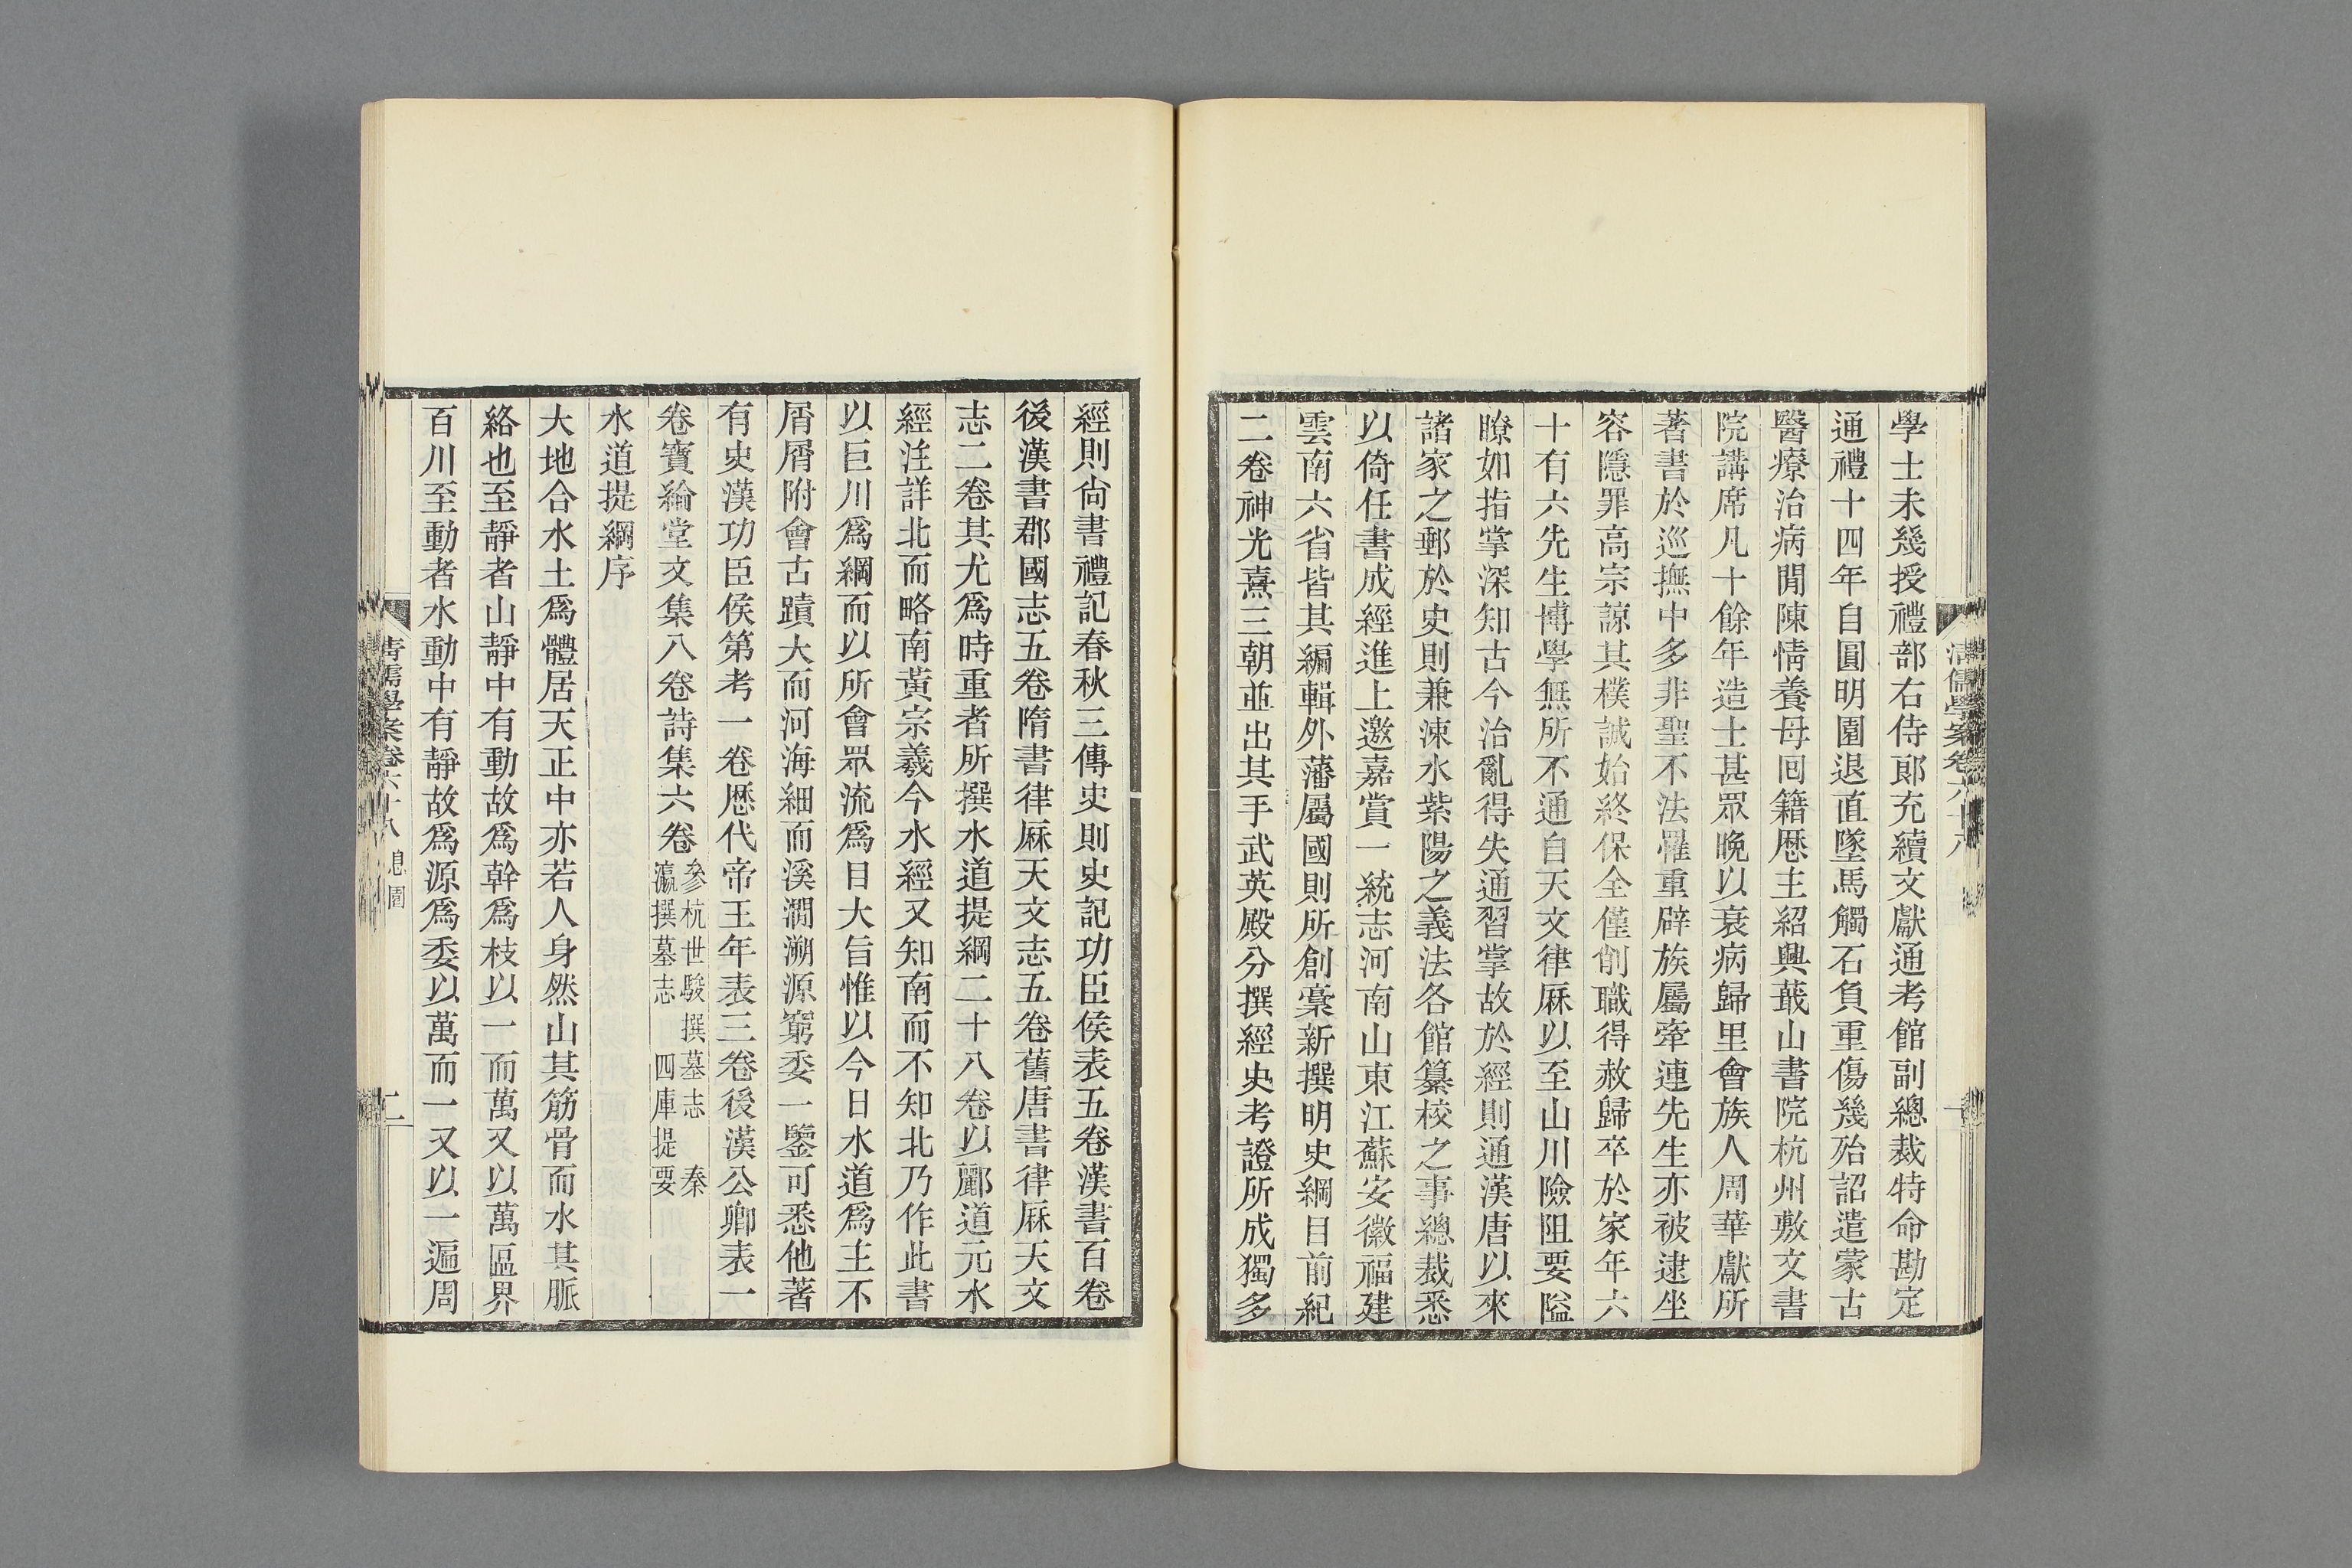 學士未幾授禮部右侍郞充續文獻通考館副總裁特命勘定
通禮十四年自圓明園退直墜馬觸石負重傷幾殆詔遣蒙古
醫療治病閒陳情養母回籍歷主紹興蕺山書院杭州敷文書
院講席凡十餘年造士甚眾晚以衰病歸里會族人周華獻所
著書於巡撫中多非聖不法罹重辟族屬牽連先生亦被逮坐
容隱罪高宗諒其樸誠始終保全僅削職得赦歸卒於家年六
十有六先生博學無所不通自天文律厤以至山川險阻要隘
瞭如指掌深知古今治亂得失通習掌故於經則通漢唐以來
諸家之郵於史則兼涑水紫陽之義法各館纂校之事總裁悉
以倚任書成經進上邀嘉賞一統志河南山東江蘇安徽福建
雲南六省皆其編輯外藩屬國則所創稾新撰明史綱目前紀
二卷神光熹三朝並出其手武英殿分撰經史考證所成獨多
經則尙書禮記春秋三傳史則史記功臣侯表五卷漢書百卷
後漢書郡國志五卷隋書律厤天文志五卷舊唐書律厤天文
志二卷其尤爲時重者所撰水道提綱二十八卷以酈道元水
經注詳北而略南黃宗羲今水經又知南而不知北乃作此書
以巨川爲綱而以所會眾流爲目大旨惟以今日水道爲主不
屑屑附會古蹟大而河海細而溪澗溯源窮委一鑒可悉他著
有史漢功臣侯第考一卷歷代帝王年表三卷後漢公卿表一
卷寶綸堂文集八卷詩集六卷
參杭世駿撰墓志 秦
瀛撰墓志 四庫提要
水道提綱序
大地合水土爲體居天正中亦若人身然山其筋骨而水其脈
絡也至靜者山靜中有動故爲幹爲枝以一而萬又以萬區界
百川至動者水動中有靜故爲源爲委以萬而一又以一遍周
清儒學案卷六十八 息園
二